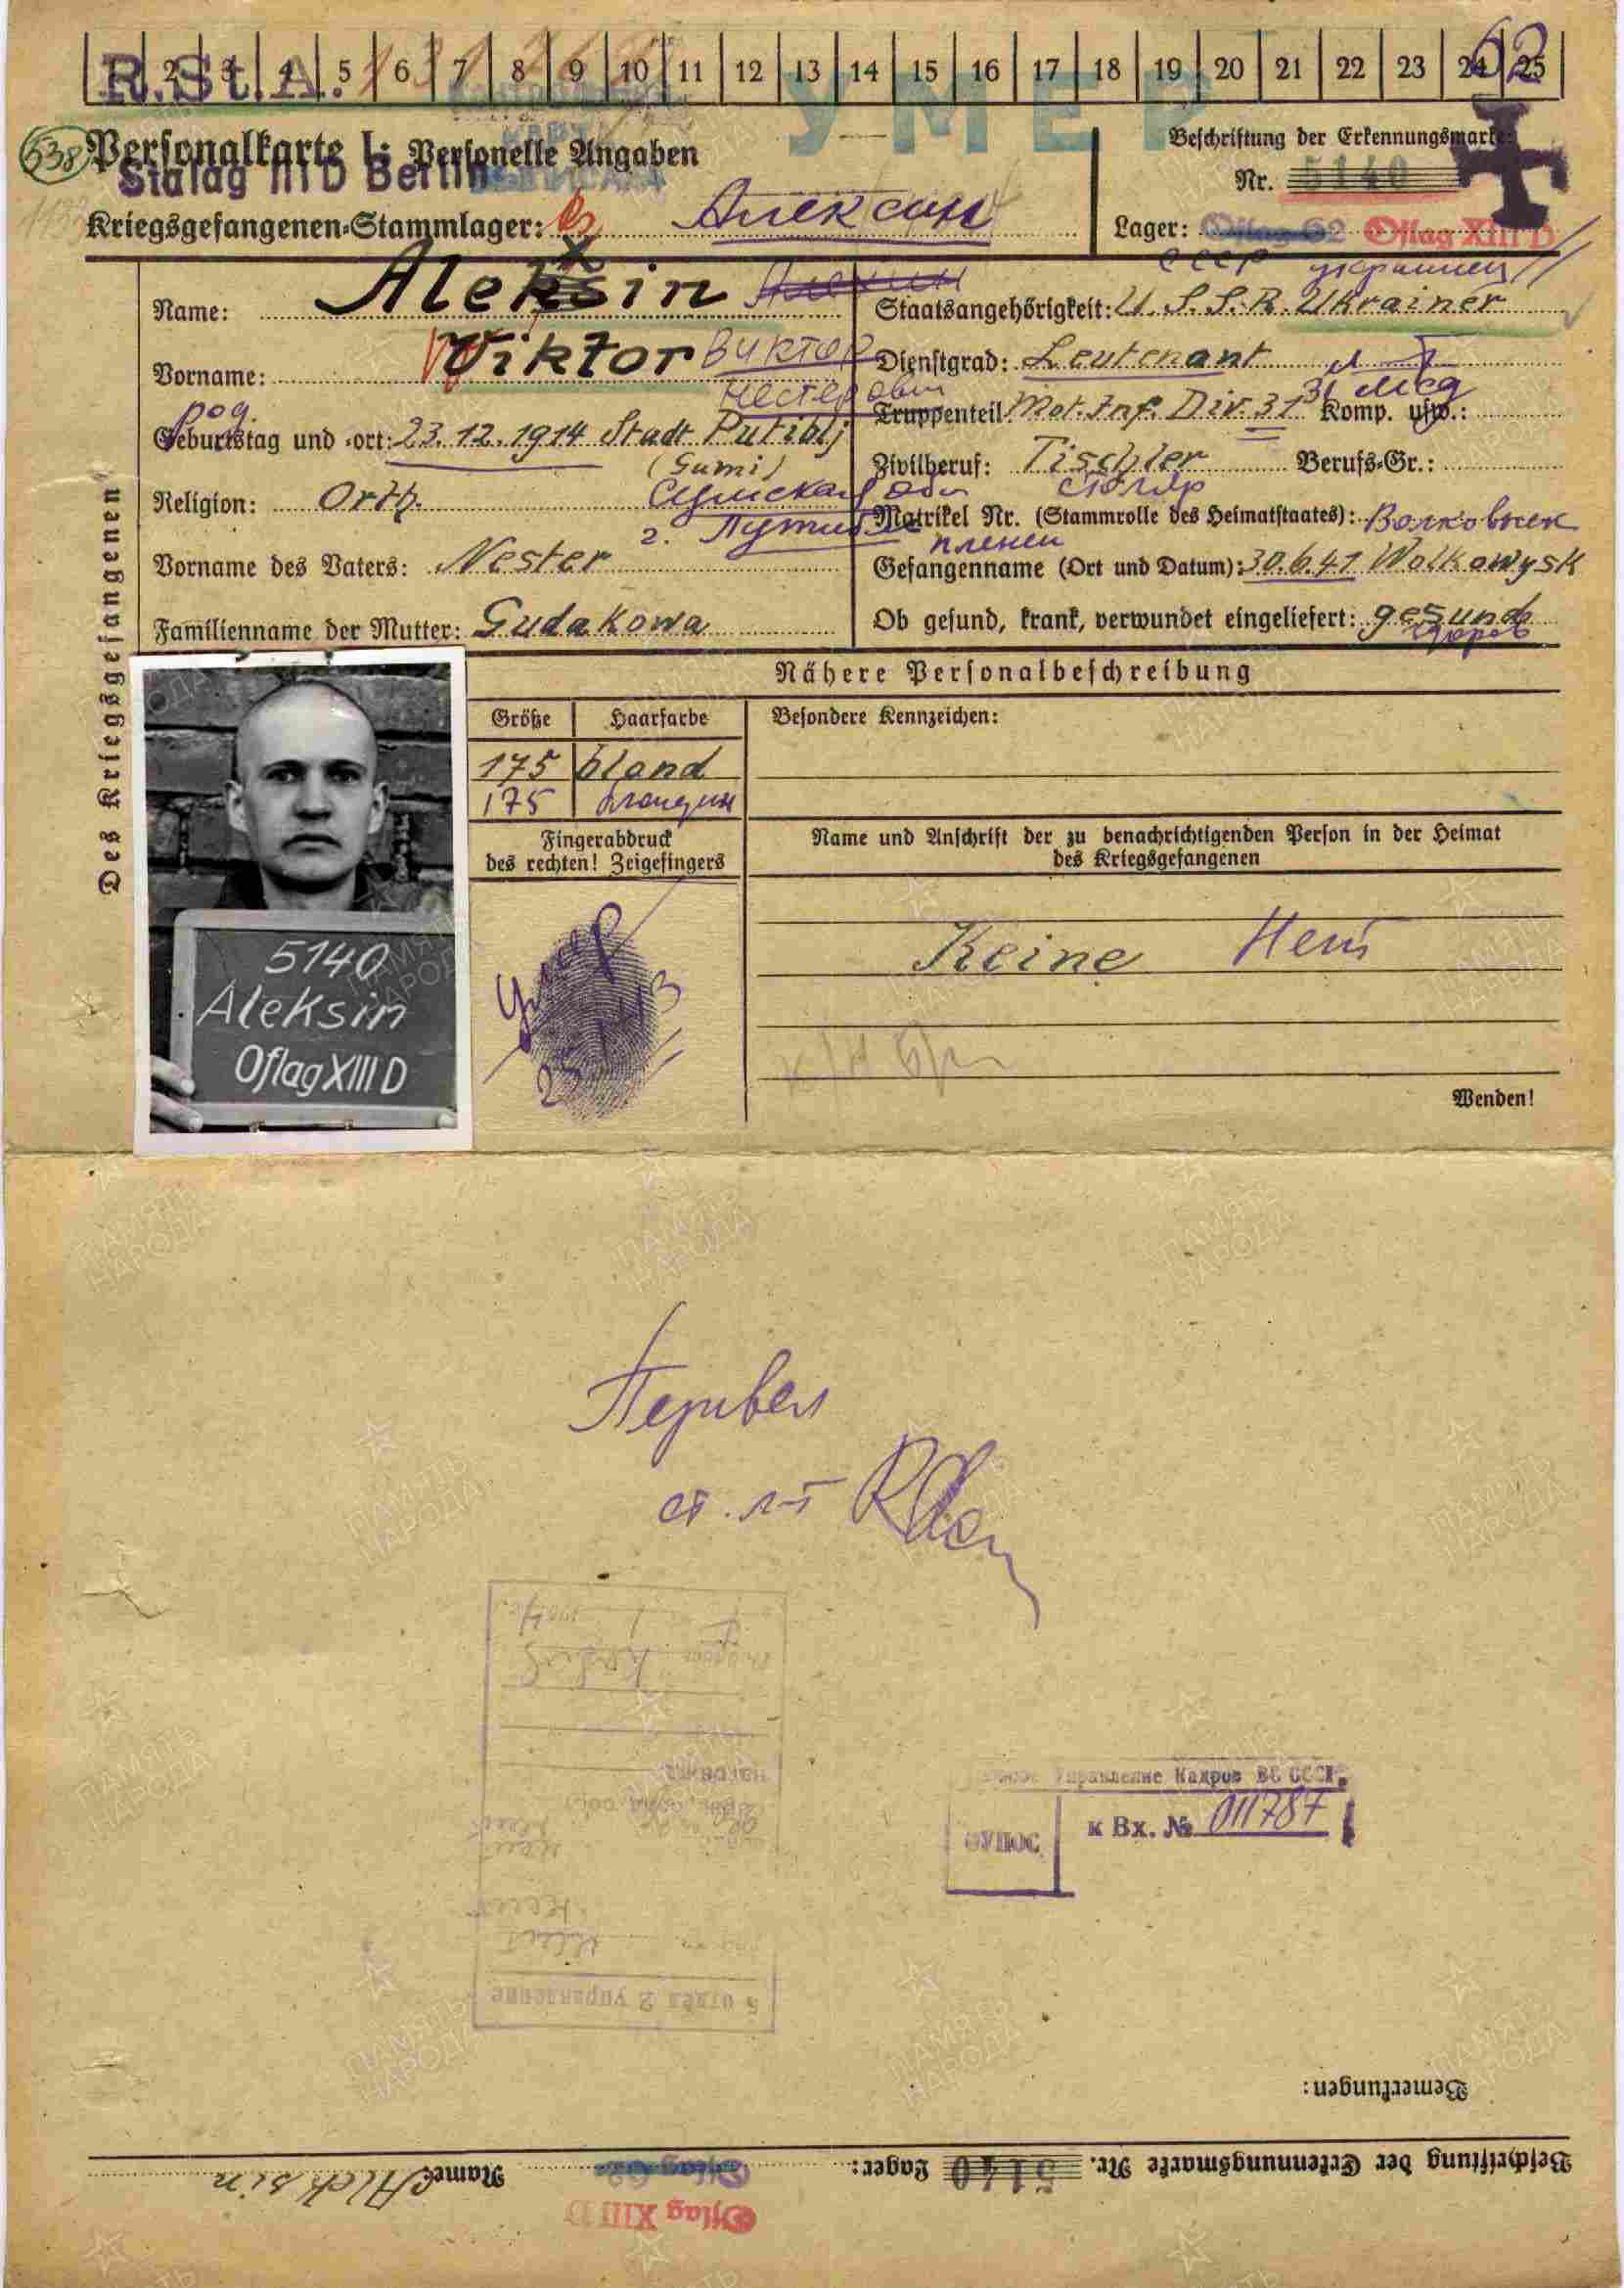 R.St.A.
1 2 3 4 5 6 7 8 9 10 11 12 13 14 15 16 17 18 19 20 21 22 23 24 25
62
УМЕР
538
Personalkarte I: Personelle Angaben
Stalag III D Berlin
Beschriftung der Erkennungsmarke:
Nr. 5140
Kriegsgefangenen-Stammlager: Алексин
Lager: Oflag 62 Oflag XIII D
СССР украинец
Des Kriegsgefangenen
Name: Aleksin Алексин
x
Vorname: Wiktor Виктор
Нестерович
род.
Geburtstag und -ort: 23.12.1914 Stadt Putiblj
(Sumi)
Religion: Orth. Сумская обл
г. Путивль
Vorname des Vaters: Nester
Familienname der Mutter: Gudakowa
Staatsangehörigkeit: U.S.S.R. Ukrainer
Dienstgrad: Leutenant л-т
31 мсд
Truppenteil: Mot. Inf. Div. 31 Komp. usw.:
Zivilberuf: Tischler Berufs-Gr.:
столяр
Matrikel Nr. (Stammrolle des Heimatstaates): Волковыск
пленен
Gefangenname (Ort und Datum): 30.6.41 Wolkowysk
Ob gesund, krank, verwundet eingeliefert: gesund
здоров
Nähere Personalbeschreibung
Größe Haarfarbe
175 blond
175 блондин
Besondere Kennzeichen:
Fingerabdruck
des rechten! Zeigefingers
умер
25 1 43
Name und Anschrift der zu benachrichtigenden Person in der Heimat
des Kriegsgefangenen
Keine Нет
Wenden!
5140
Aleksin
Oflag XIII D
Перевел
ст. л-т
Управление Кадров ВС СССР
к Вх. № 011787
5 отдел 2 управление
Bemerkungen:
Beschriftung der Erkennungsmarke Nr. 5140 Lager: Oflag 62 Name: Aleksin
Oflag XIII D
ПАМЯТЬ
НАРОДА